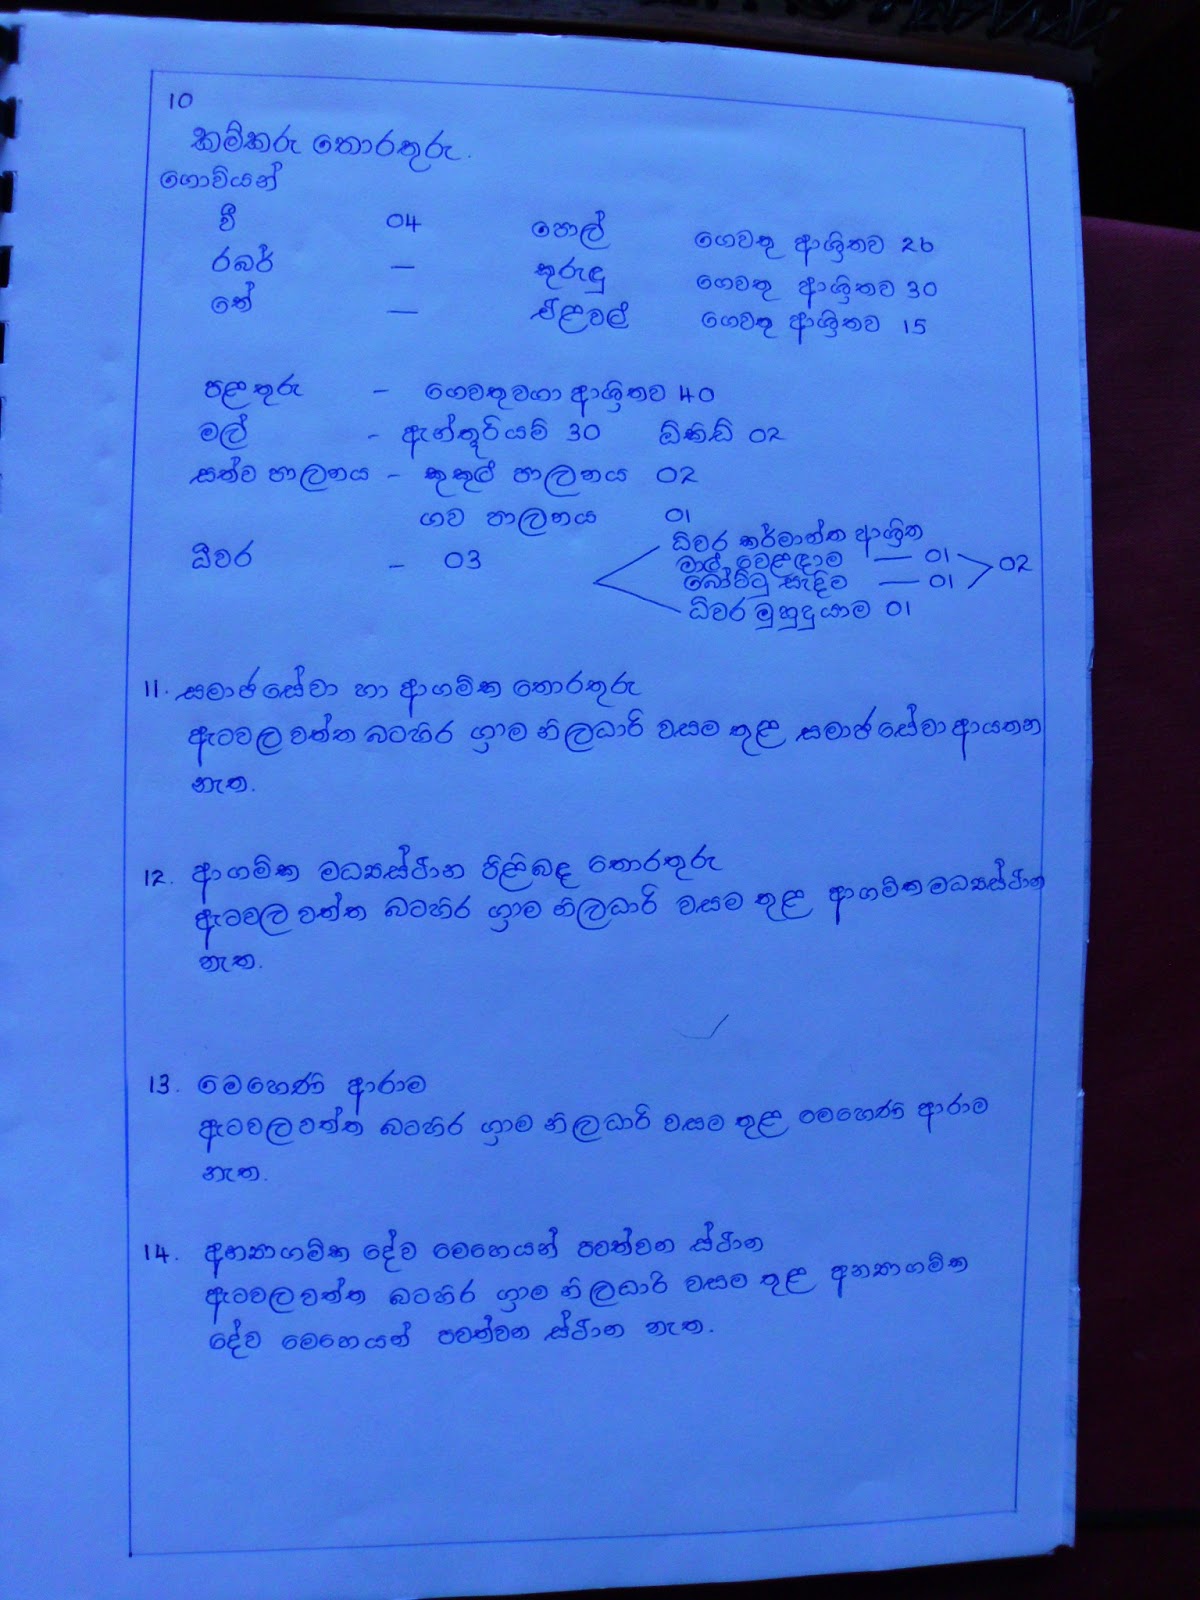 10
කම්කරු තොරතුරු.
ගොවියන්
වී 04 පොල් ගෙවතු ආශ්‍රිතව 26
රබර් — කුරුඳු ගෙවතු ආශ්‍රිතව 30
තේ — එළවළු ගෙවතු ආශ්‍රිතව 15
පළතුරු – ගෙවතුවගා ආශ්‍රිතව 40
මල් - ඇන්තූරියම් 30 ඕකිඩ් 02
සත්ව පාලනය – කුකුළු පාලනය 02
ගව පාලනය 01
ධීවර – 03
ධීවර කර්මාන්ත ආශ්‍රිත
මාළු වෙළඳාම — 01
බෝට්ටු සෑදීම — 01
02
ධීවර මුහුදුයාම 01
11. සමාජසේවා හා ආගමික තොරතුරු
ඇටවලවත්ත බටහිර ග්‍රාම නිලධාරී වසම තුළ සමාජසේවා ආයතන
නැත.
12. ආගමික මධ්‍යස්ථාන පිළිබඳ තොරතුරු
ඇටවලවත්ත බටහිර ග්‍රාම නිලධාරී වසම තුළ ආගමික මධ්‍යස්ථාන
නැත.
13. මෙහෙණි ආරාම
ඇටවලවත්ත බටහිර ග්‍රාම නිලධාරී වසම තුළ මෙහෙණි ආරාම
නැත.
14. අන්‍යාගමික දේව මෙහෙයන් පවත්වන ස්ථාන
ඇටවලවත්ත බටහිර ග්‍රාම නිලධාරී වසම තුළ අන්‍යාගමික
දේව මෙහෙයන් පවත්වන ස්ථාන නැත.